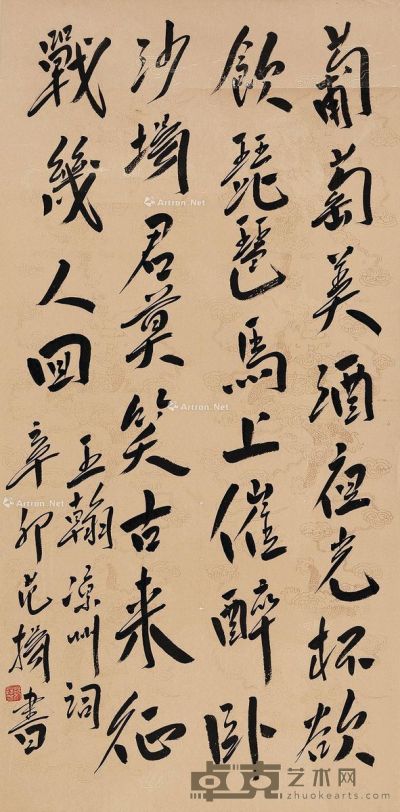 葡萄美酒夜光杯欲
飲琵琶馬上催醉卧
沙場君莫笑古来征
戰幾人回
王翰凉州詞
辛卯范揚書
Artron.Net
Artron.Net
Artron.Net
Artron.Net
Artron.Net
卓克艺术网
zhuokearts.com